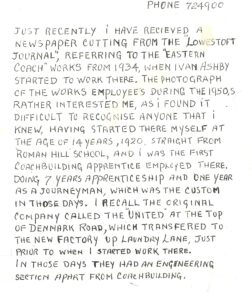 PHONE 724900
JUST RECENTLY I HAVE RECIEVED A
NEWSPAPER CUTTING FROM THE "LOWESTOFT
JOURNAL", REFERRING TO THE "EASTERN
COACH" WORKS FROM 1934, WHEN IVAN ASHBY
STARTED TO WORK THERE. THE PHOTOGRAPH
OF THE WORKS EMPLOYEES DURING THE 1950,S
RATHER INTERESTED ME, AS I FOUND IT
DIFFICULT TO RECOGNISE ANYONE THAT I
KNEW, HAVING STARTED THERE MYSELF AT
THE AGE OF 14 YEARS, 1920. STRAIGHT FROM
ROMAN HILL SCHOOL, AND I WAS THE FIRST
COACHBUILDING APPRENTICE EMPLOYED THERE,
DOING 7 YEARS APPRENTICESHIP AND ONE YEAR
AS A JOURNEYMAN, WHICH WAS THE CUSTOM
IN THOSE DAYS. I RECALL THE ORIGINAL
COMPANY CALLED THE 'UNITED' AT THE TOP
OF DENMARK ROAD, WHICH TRANSFERED TO
THE NEW FACTORY UP LAUNDRY LANE, JUST
PRIOR TO WHEN I STARTED WORK THERE.
IN THOSE DAYS THEY HAD AN ENGINEERING
SECTION APART FROM COACHBUILDING.